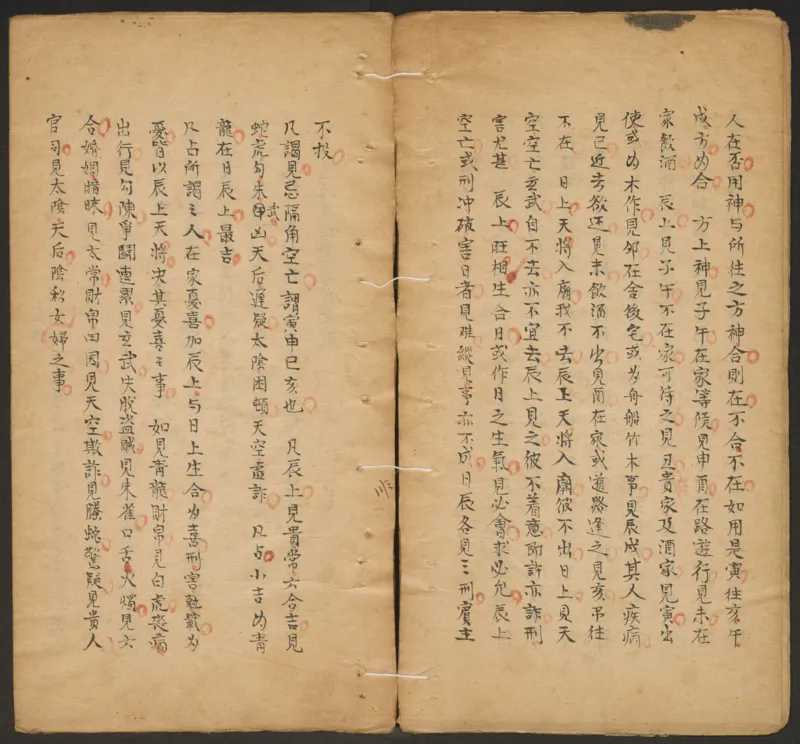 人在否用神与所往之方神合則在不合不在如用是寅往亥午
成方為合 方上神見子午在家等候見申酉在路遊行見未在
家飲酒 辰上見子午不在家可待之見丑貴家及酒家見寅出
使或為木作見卯在舍後宅或為舟船竹木事見辰戌其人疾病
見巳近去欲还見未飲酒不出見酉在家或道路逢之見亥吊往
不在 日上天將入廟我不去辰上天將入廟彼不出日上見天
空空亡玄武自不去亦不宜去辰上見之彼不着意所許亦詐刑
害尤甚 辰上旺相生合日或作日之生氣見必會求必允辰上
空亡或刑冲破害日者見難縱見事亦不成日辰各見三刑賓主
不投
凡謁見忌隔角空亡謂寅申巳亥也 凡辰上見貴常六合吉見
蛇虎勾朱武凶天后遲疑太陰困頓天空虛詐 凡占小吉為青
龍在日辰上最吉
凡占所謁之人在家憂喜加辰上与日上生合為喜刑害尅戰為
憂皆以辰上天將決其憂喜之事 如見青龍財帛見白虎喪病
出行見勾陳爭鬪連累見玄武失脫盜賊見朱雀口舌火燭見六
合婚姻暗昧見太常財帛田因見天空欺詐見螣蛇驚疑見貴人
官司見太陰天后陰私女婦之事